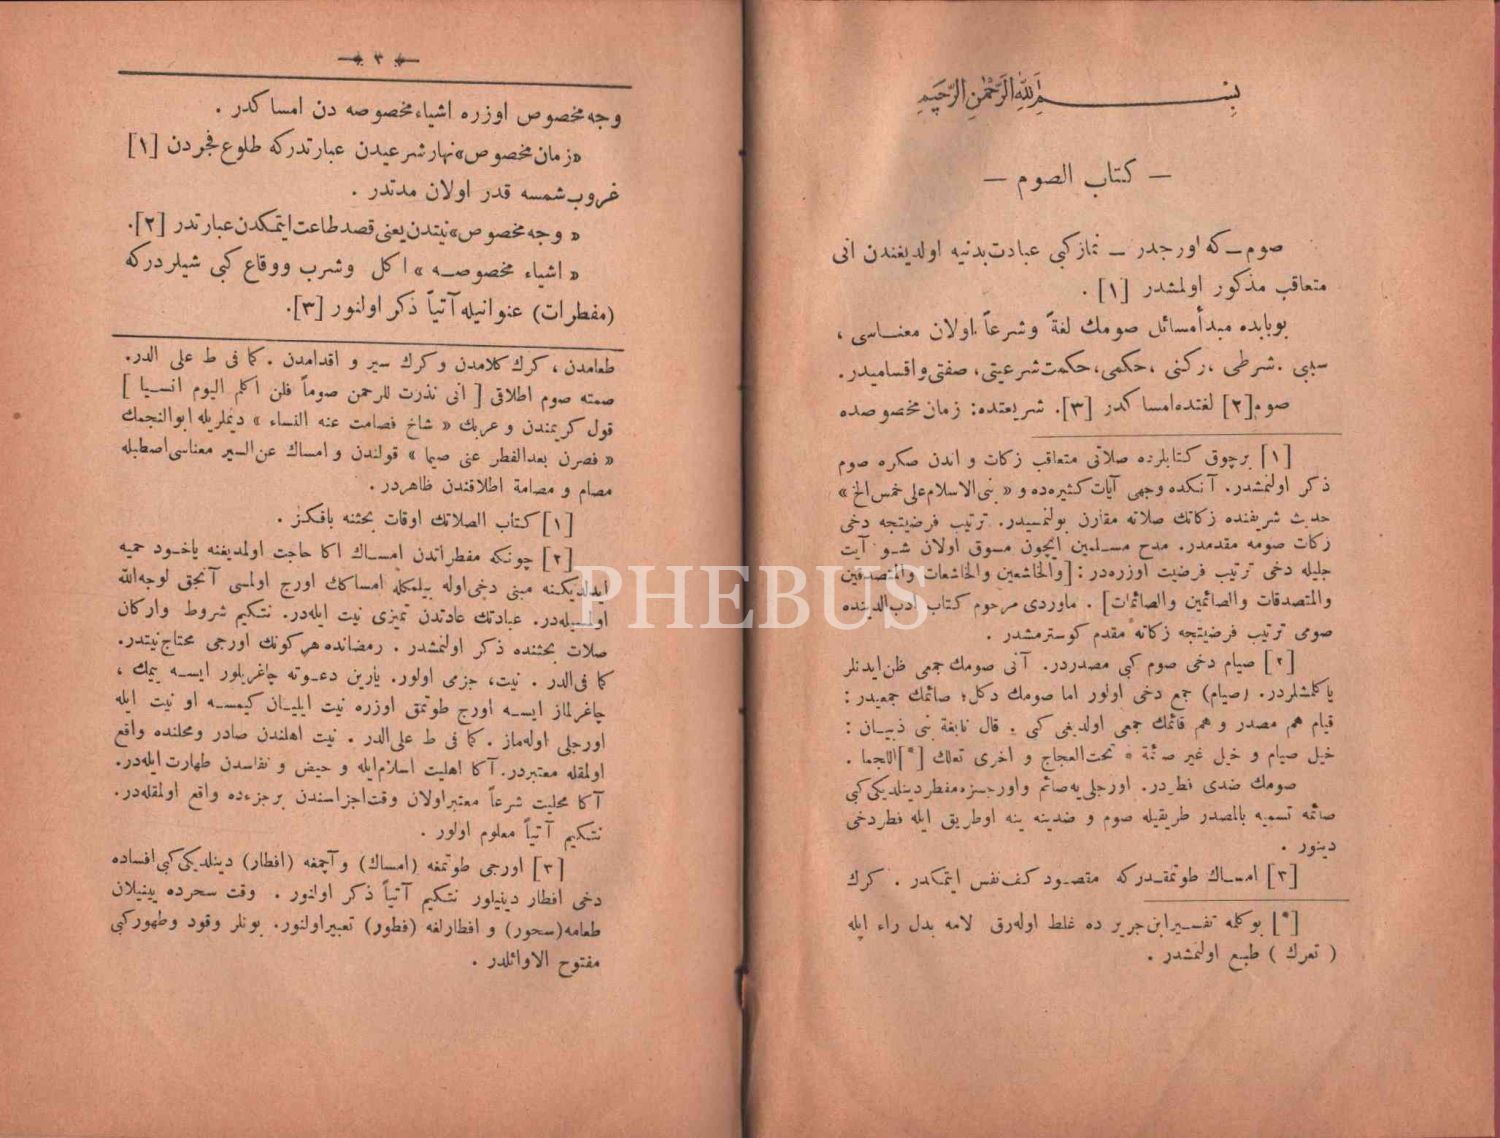 بسم الله الرحمن الرحيم
— كتاب الصوم —
صوم — كه اورجدر — نمازكبى عبادت بدنيه اولديغندن انى
متعاقب مذكور اولمشدر [١] .
بوبابده مبدأمسائل صومك لغةً وشرعاً اولان معناسى ،
سببى . شرطى ، ركنى ، حكمى، حكمت شرعيتى، صفتى واقساميدر.
صوم[٢] لغتده امساكدر [٣]. شريعتده: زمان مخصوصده
[١] برچوق كتابلرده صلاتى متعاقب زكات و اندن صكره صوم
ذكر اولنمشدر. آنكده وجهى آيات كثيره ده و « بنى الاسلام على خمس الخ »
حديث شريفنده زكاتك صلاته مقارن بولنمسيدر. ترتيب فرضيتجه دخى
زكات صومه مقدمدر. مدح مسلمين ايچون مسوق اولان شو آيت
جليله دخى ترتيب فرضيت اوزره در : [والخاشعين والخاشعات والمتصدقين
والمتصدقات والصائمين والصائمات] . ماوردى مرحوم كتاب ادب الديننده
صومى ترتيب فرضيتجه زكاته مقدم كوسترمشدر .
[٢] صيام دخى صوم كبى مصدردر. آنى صومك جمعى ظن ايدنلر
ياكلشلردر. (صيام) جمع دخى اولور اما صومك دكل؛ صائمك جمعيدر :
قيام هم مصدر و هم قائمك جمعى اولديغى كبى . قال نابغة بنى ذبيان :
خيل صيام و خيل غير صائمة * تحت العجاج و اخرى تعلك [*]اللجما .
صومك ضدى فطردر. اورجلى يه صائم واورجسزه مفطر دينلديكى كبى
صائمه تسميه بالمصدر طريقيله صوم و ضدينه ينه اوطريق ايله فطردخى
دينور .
[٣] امساك طوتمقدركه مقصود كف نفس ايتمكدر . كرك
[*] بوكلمه تفسير ابن جرير ده غلط اوله رق لامه بدل راء ايله
( تعرك ) طبع اولنمشدر .
٣
وجه مخصوص اوزره اشياء مخصوصه دن امساكدر .
«زمان مخصوص» نهار شرعيدن عبارتدركه طلوع فجردن [١]
غروب شمسه قدر اولان مدتدر .
« وجه مخصوص» نيتدن يعنى قصد طاعت ايتمكدن عبارتدر [٢].
« اشياء مخصوصه » اكل وشرب ووقاع كبى شيلردركه
(مفطرات) عنوانيله آتياً ذكر اولنور [٣].
طعامدن ، كرك كلامدن و كرك سير و اقدامدن . كما فى ط على الدر.
صمته صوم اطلاقى [ انى نذرت للرحمن صوماً فلن اكلم اليوم انسيا ]
قول كريمندن و عربك « شاخ فصامت عنه النساء » ديملريله ابوالنجمك
« فصرن بعدالفطر عنى صيما » قولندن و امساك عن السير معناسى اصطبله
مصام و مصامة اطلاقندن ظاهردر .
[١] كتاب الصلاتك اوقات بحثنه باقكز .
[٢] چونكه مفطراتدن امساك اكا حاجت اولمديغنه ياخود حميه
ايدلديكنه مبنى دخى اوله بيلمكله امساكك اورج اولمسى آنجق لوجه الله
اولمسيله در. عبادتك عادتدن تميزى نيت ايله در. نتكيم شروط واركان
صلات بحثنده ذكر اولنمشدر . رمضانده هركونك اورجى محتاج نيتدر.
كما فى الدر . نيت، جزمى اولور. يارين دعوته چاغريلور ايسه يمك ،
چاغرلماز ايسه اورج طوتمق اوزره نيت ايليان كيمسه او نيت ايله
اورجلى اوله ماز . كما فى ط على الدر . نيت اهلندن صادر ومحلنده واقع
اولمقله معتبردر. آكا اهليت اسلام ايله و حيض و نفاسدن طهارت ايله در.
آكا محليت شرعاً معتبر اولان وقت اجزاسندن برجزءده واقع اولمقله در.
نتكيم آتياً معلوم اولور .
[٣] اورجى طوتمغه (امساك) و آچمغه (افطار) دينلديكى كبى افساده
دخى افطار دينيلور نتكيم آتياً ذكر اولنور . وقت سحرده يينيلان
طعامه(سحور) و افطارلغه (فطور) تعبيراولنور. بونلر وقود وطهوركبى
مفتوح الاوائلدر .
PHEBUS